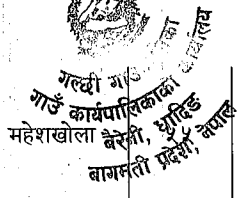 गल्छी गाउँ
गाउँ कार्यपालिकाको कार्यालय
महेशखोला बैरेनी, धादिङ
बागमती प्रदेश, नेपाल